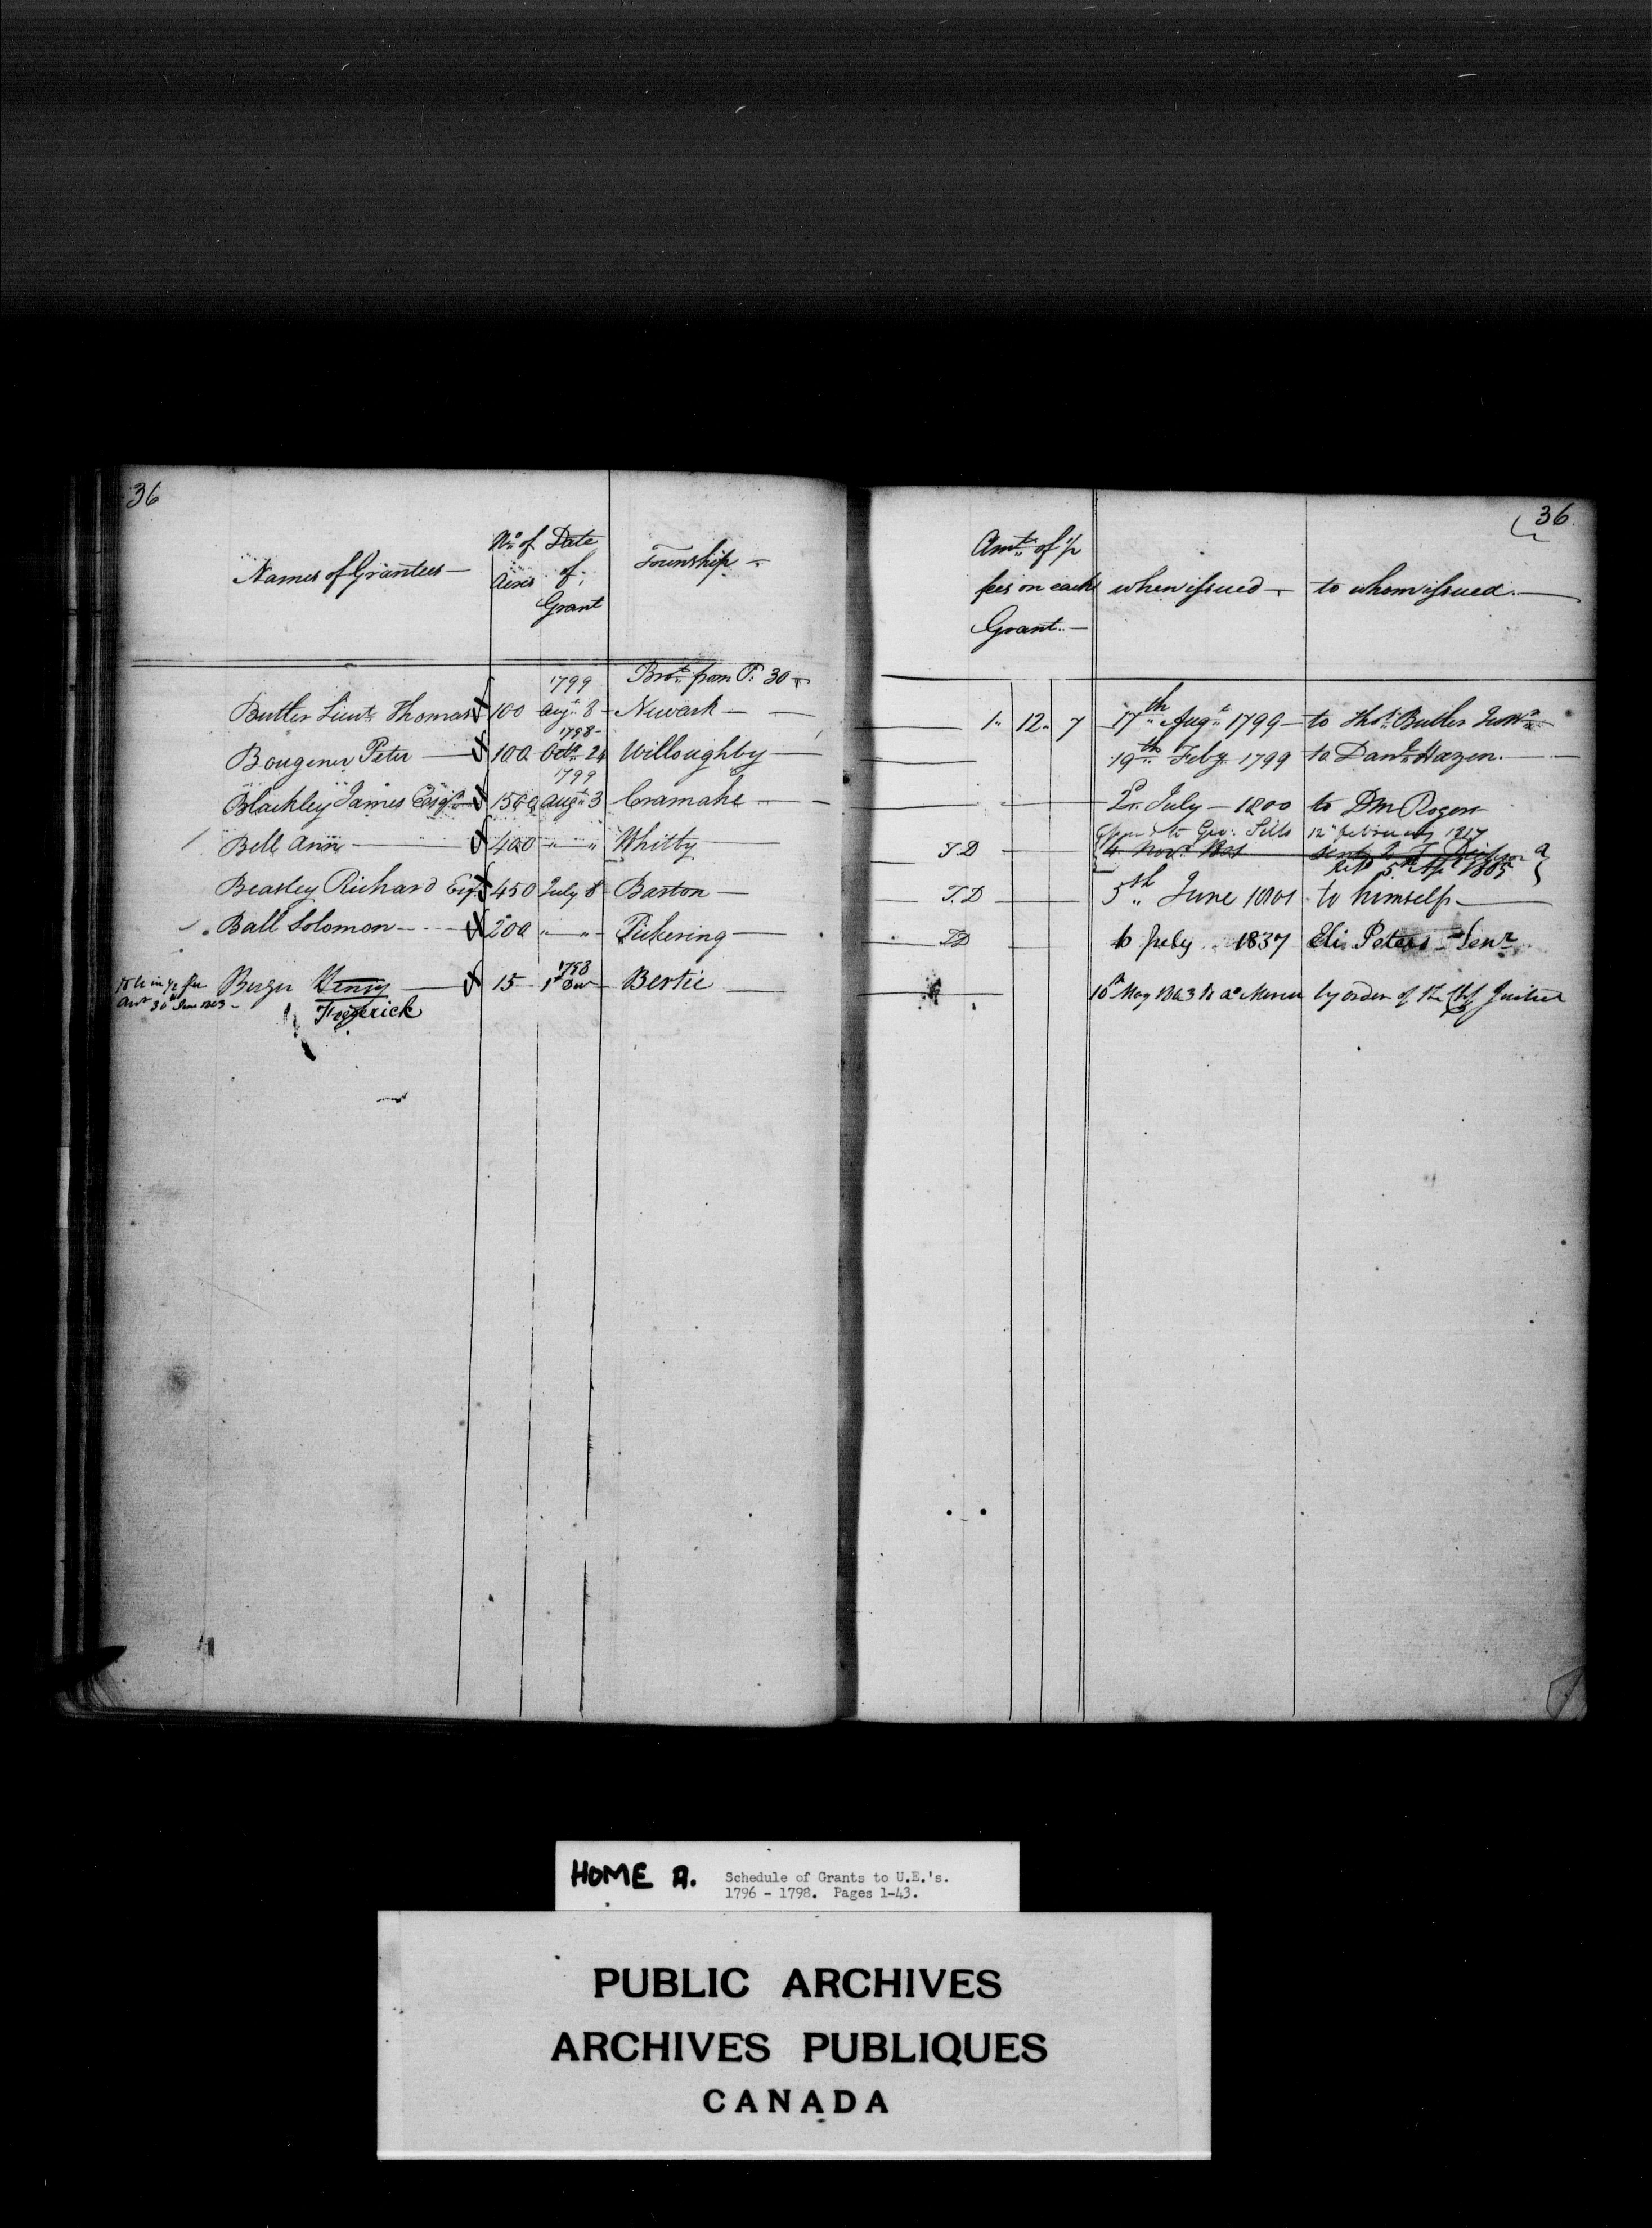 36
Names of Grantees
No. of Acres
Date of Grant
Township
Brot. from P. 30
Butler Lieut. Thomas 100 1799 Augt. 8 Newark
Bougener Peter 100 1798 Octr. 24 Willoughby
Blackley James Esqr. 1500 1799 Augt. 3 Cramahe
Bell Ann 400 " " Whitby
Beasley Richard Esqr. 450 July 8 Barton
Ball Solomon 200 " " Pickering
Burger Henry 15 1798 1st Bertie
Frederick
36
Amt. of fees on each Grant
when issued
to whom issued
1 " 12 " 7 17th Augt. 1799 to Thos. Butler
19th Feby. 1799 to Danl. Hazen
2d. July 1800 to DM Rogers
12 february 1817
T.D 4 Novr. 1801 sent to
5th Ap 1805
T.D 5th June 1801 to himself
T.D 6 July 1837 Eli Peters Senr.
10th May 1803 by order of the Chf Justice
HOME A.
Schedule of Grants to U.E.'s.
1796 - 1798. Pages 1-43.
PUBLIC ARCHIVES
ARCHIVES PUBLIQUES
CANADA